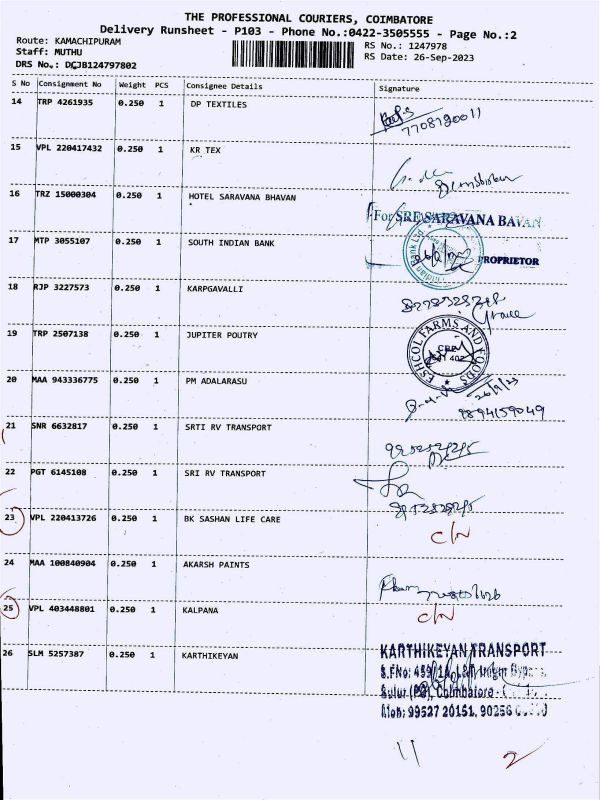 THE PROFESSIONAL COURIERS, COIMBATORE
Delivery Runsheet - P103 - Phone No.:0422-3505555 - Page No.:2
Route: KAMACHIPURAM
Staff: MUTHU
DRS No.: DCJB124797802
RS No.: 1247978
RS Date: 26-Sep-2023
S No Consignment No Weight PCS Consignee Details Signature
14 TRP 4261935 0.250 1 DP TEXTILES
15 VPL 220417432 0.250 1 KR TEX
16 TRZ 15000304 0.250 1 HOTEL SARAVANA BHAVAN
For SREE SARAVANA BAVAN
17 MTP 3055107 0.250 1 SOUTH INDIAN BANK
PROPRIETOR
18 RJP 3227573 0.250 1 KARPGAVALLI
19 TRP 2507138 0.250 1 JUPITER POUTRY
ESHCOL FARMS AND FOODS
CBE
641 402
20 MAA 943336775 0.250 1 PM ADALARASU
26/9/23
9894159049
21 SNR 6632817 0.250 1 SRTI RV TRANSPORT
22 PGT 6145108 0.250 1 SRI RV TRANSPORT
23 VPL 220413726 0.250 1 BK SASHAN LIFE CARE
C/N
24 MAA 100840904 0.250 1 AKARSH PAINTS
25 VPL 403448801 0.250 1 KALPANA
C/N
26 SLM 5257387 0.250 1 KARTHIKEYAN
KARTHIKEYAN TRANSPORT
S.F.No: 459/1A, L&T
Sulur (PO), Coimbatore -
Mob: 99527 20151, 90256
11
2